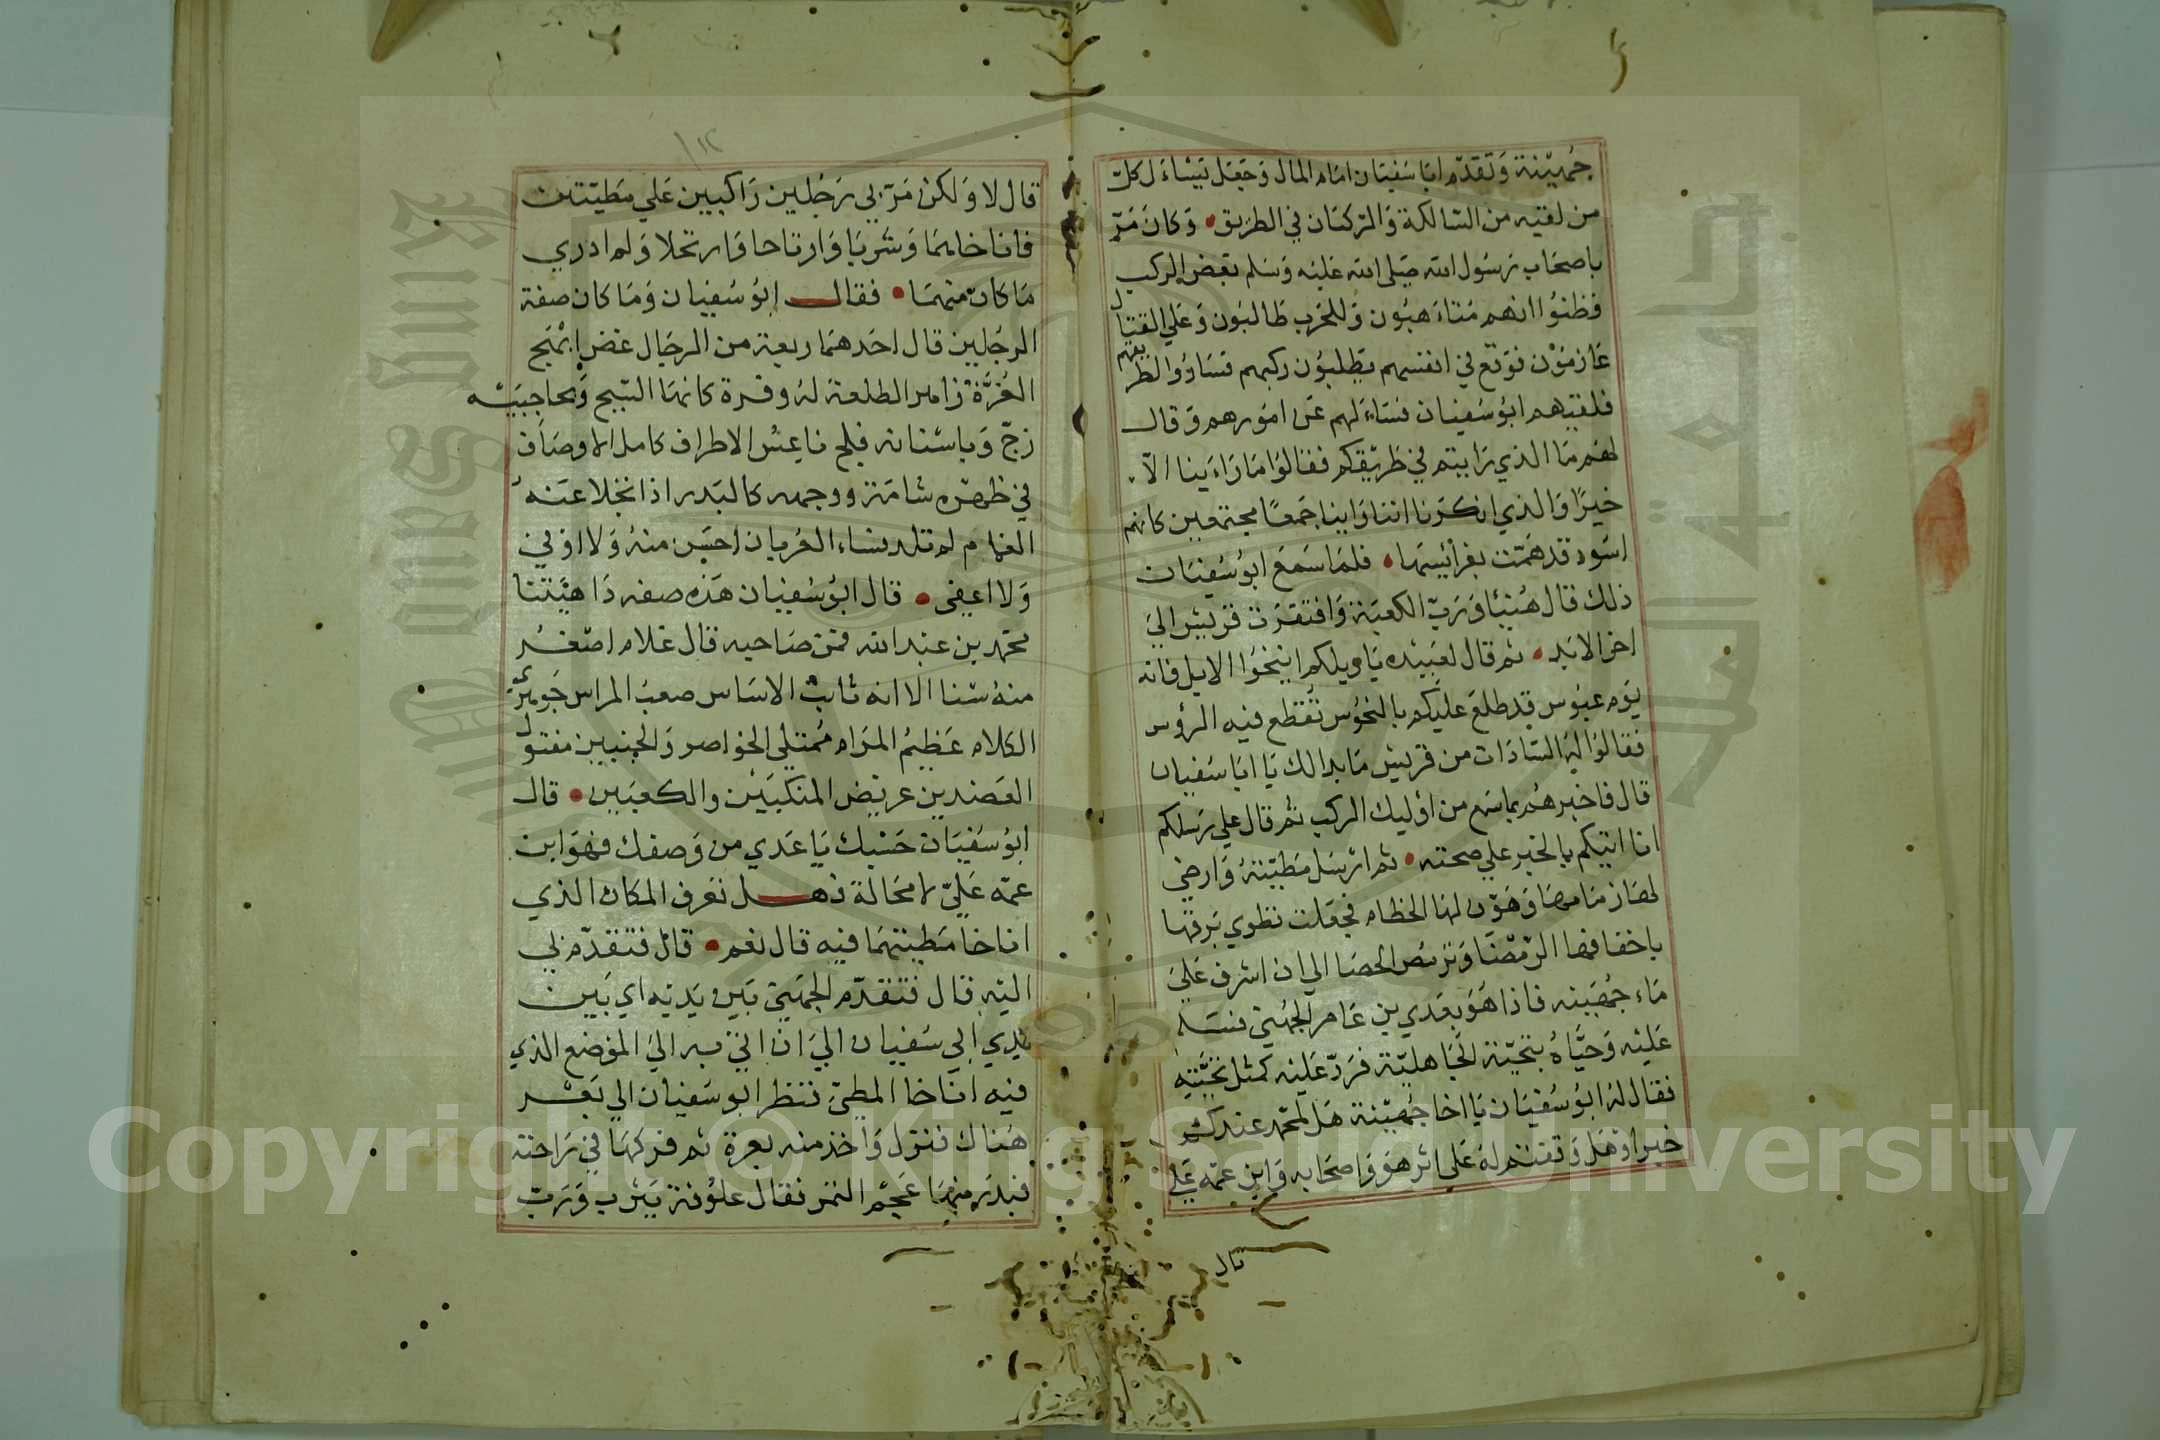 جُهيّنة وَتقدّم ابَا سَفيَان امَام المال وَجَعَل يَسْاءَل كلّ
من لقيه من السَالكة وَالرّكبَان في الطَريق وَكانَ مَرّ
باصحَاب رَسُول الله صَلى الله عَليْه وَسَلم بَعض الركب
فظنوُا انهم مَتاءَهبُون وَللحَرب طَالبُون وَعَلي القتال
عَازمُوْن فوَقع في انفسهم يَطلبوُن ركبهم فسَاروُا الطريقهم
فلقيَهم ابوُ سَفيان فسَاءَلهم عَن امُورهم وَقال
لهمُ مَا الذي رَاييتم في طَريْقكم فقالوُا مَا رَاءَينا الآ
خيرًا وَالذي انكرَنا اننا رَاينا جَمعًا مجتمعين كانهم
اسَود قدهَمّت بفرَايْسَها فلمَا سَمعَ ابوُ سُفيَان
ذلك قال هُبْيًا وَرَبّ الكعبَة وَافتقرَت قرَيْش الىَ
اخر الابَد ثم قال لعَبيْده يَا وَيلكم انيخوُا الابل فانه
يوَم عبوُس قد طلعَ عليَكم بالنحوُس تُقطع فيه الرؤس
فقالوُا لهُ السّادَات من قريْش مَا بدا لك يَا ابَا سَفيان
قال فاخبرهُم بماسَمع من اوْليك الركب ثمُ قال علي رَسلكم
انا اتيكم بالخبر علي صحته ثم ارْسَل مَطيّتهُ وَارخي
لهَا زمَامهَا وَهَوّن لهَا الخطام فجعَلت تطوي بَرقها
باخفافها الرّمْضَا وَترُض الحصَا الي ان اشرف عَليَ
مَاء جُهَينه فاذا هَوَ بعَدي بن عَامر الجُهنيّ فسَلم
عَليْه وَحَيَّاهُ بتحيّة الجَاهليّة فرَدّ عَليْه كمثل تحيَّتِهِ
فقال لهُ ابوُ سُفيَان يَا اخا جُهيْنة هَل لمحّمد عندكم
خبر اوْهَل وَقعتم لهَ عَلي اثر هوَ وَاصحَابه وَابن عمّه عَلي
قال
١٢
قال لا وَلكن مَرّ بي رَجُلين رَاكبين عَلي مَطيّتين
فاناخاهُمَا وَشربَا وَارتاحا وَارتحلا وَلم ادري
مَا كانَ منهمَا فقال ابوُ سُفيان وَمَا كان صفة
الرجُلين قال احَدهمَا ربعة من الرجَال غض ابْهَج
الغُرَّة زاهر الطلعة لهُ وفرة كانهَا السّبج وَبحاجبيْه
زجّ وَباسْنانه فلج ناعِسْ الاطراف كامل الاوصَاف
في ظهره شامَة ووجهه كالبَدر اذا انجَلا عَنهُ
الغمام لم تلد نساء العُربان احسَن منهُ وَلا اوْفي
وَلا اعفى قال ابوُ سُفيان هَذه صفه دَاهيَّتنا
محَمد بن عَبد الله فمَن صَاحبه قال غلام اصْغرُ
منهُ سْنا الا انه ثابتْ الاسَاس صعبْ المراس جَوهرَيّ
الكلام عَظيمُ المرَام مُمتلي الخواصر وَالجنبين مفتول
العَضدين عريْض المنكبَيْن والكعبَين قال
ابوُ سُفيَان حَسْبك يَا عَدي من وَصفك فهَوَ ابن
عمّه عَليّ لا محَالة فهل تعَرف المكان الذي
اناخا مَطيتهمَا فيْه قال نعم قال فتقدّم بي
اليْه قال فتقدّم الجُهَني بَين يَديْه اي بَين
يَدي ابي سَفيان اليَ انَ اتيَ به اليَ الموَضع الذي
فيه اناخا المطيّ فنظر ابو سَفيان الي بَعْر
هُناك فنزل وَاخذ منه بعرة ثم فركهَا في رَاحته
فبدَر منهَا عَجْم التمَر فقال علوُفة يَثرب وَرَبّ